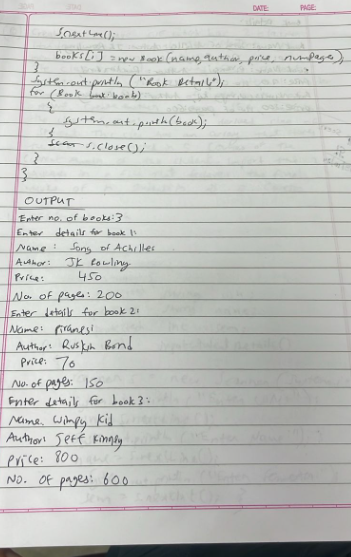 DATE: PAGE:
s.nextLine();
books[i] = new Book(name, author, price, numPages);
}
System.out.println ("Book Details");
for (Book book: books)
{
System.out.println(book);
}
s.close();
}
}
OUTPUT
Enter no. of books: 3
Enter details for book 1:
Name: Song of Achilles
Author: JK Rowling
Price: 450
No. of pages: 200
Enter details for book 2:
Name: Piranesi
Author: Ruskin Bond
Price: 70
No. of pages: 150
Enter details for book 3:
Name. Wimpy Kid
Author: Jeff Kinney
Price: 800
No. of pages: 600